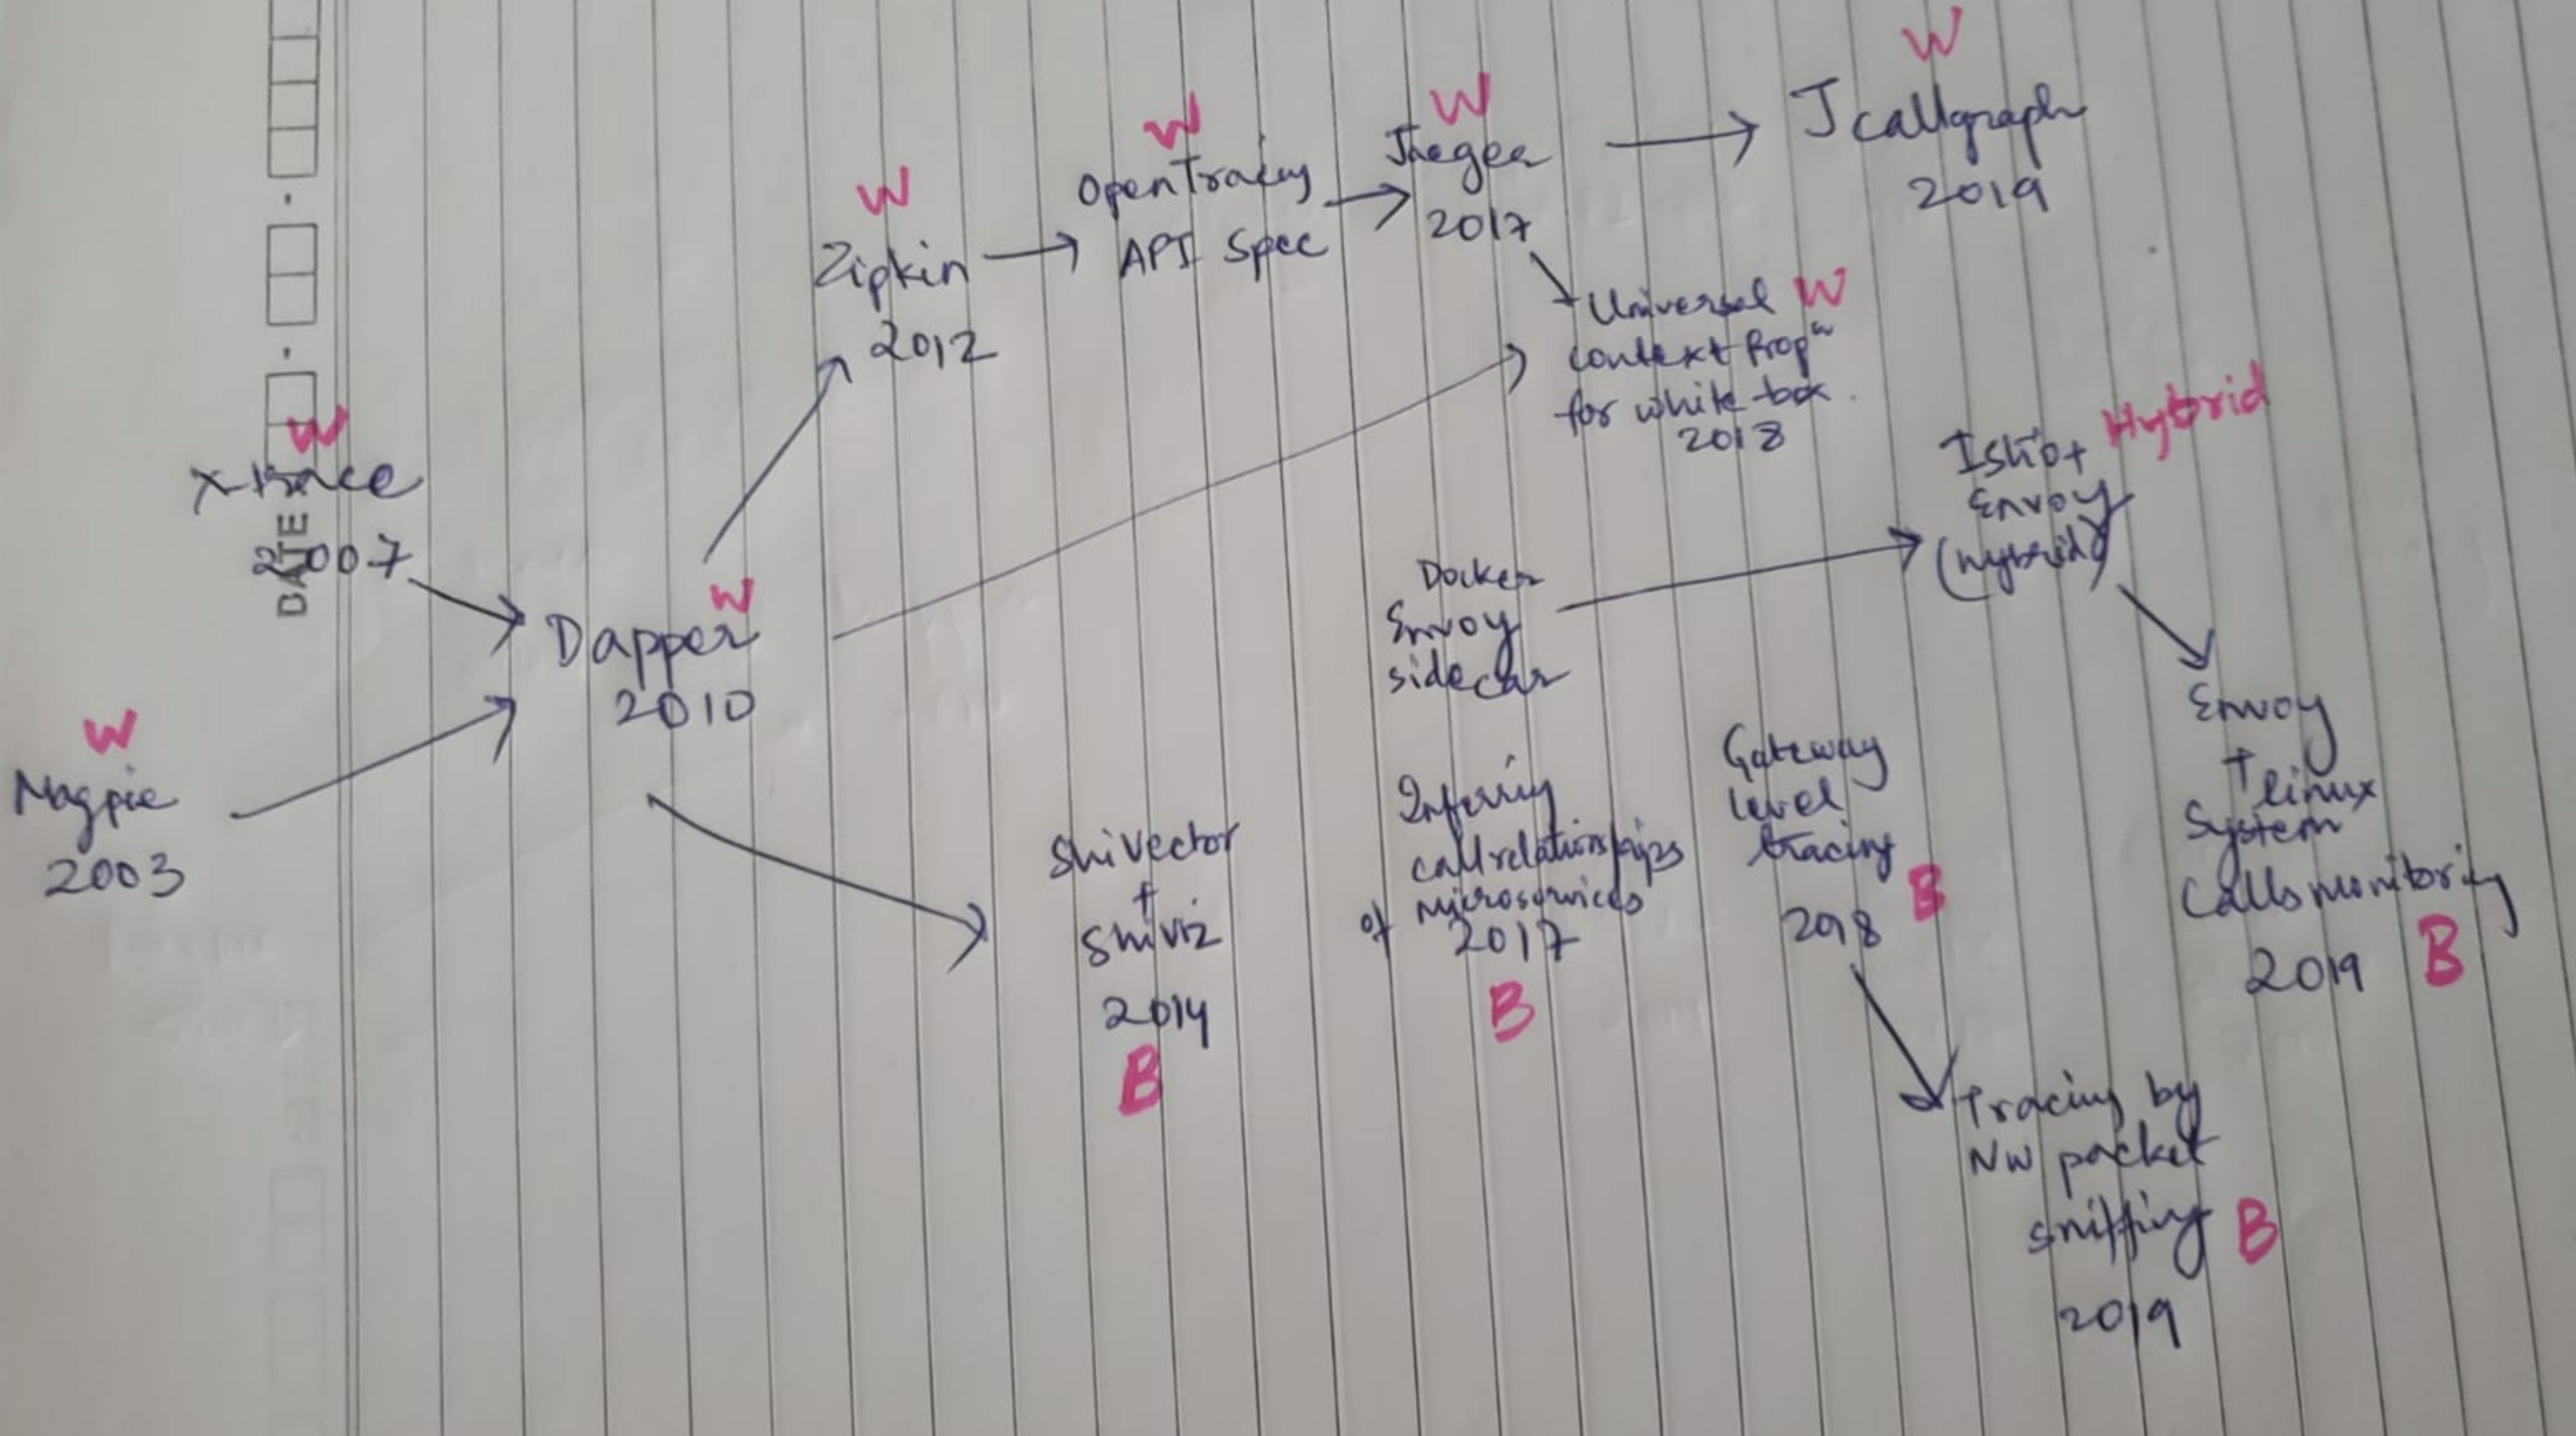 W
X-trace
2007
DATE
W
Magpie
2003
W
Dapper
2010
W
Zipkin
2012
W
OpenTracing
API Spec
W
Jaeger
2017
W
Jcallgraph
2019
Universal W
context Propⁿ
for white box
2018
Docker
Envoy
sidecar
Istio+ Hybrid
Envoy
(hybrid)
Envoy
+
linux
System
Calls monitoring
2019 B
Shivector
+
Shiviz
2014
B
Inferring
call relationships
of microservices
2017
B
Gateway
level
tracing
2018 B
Tracing by
NW packet
sniffing B
2019